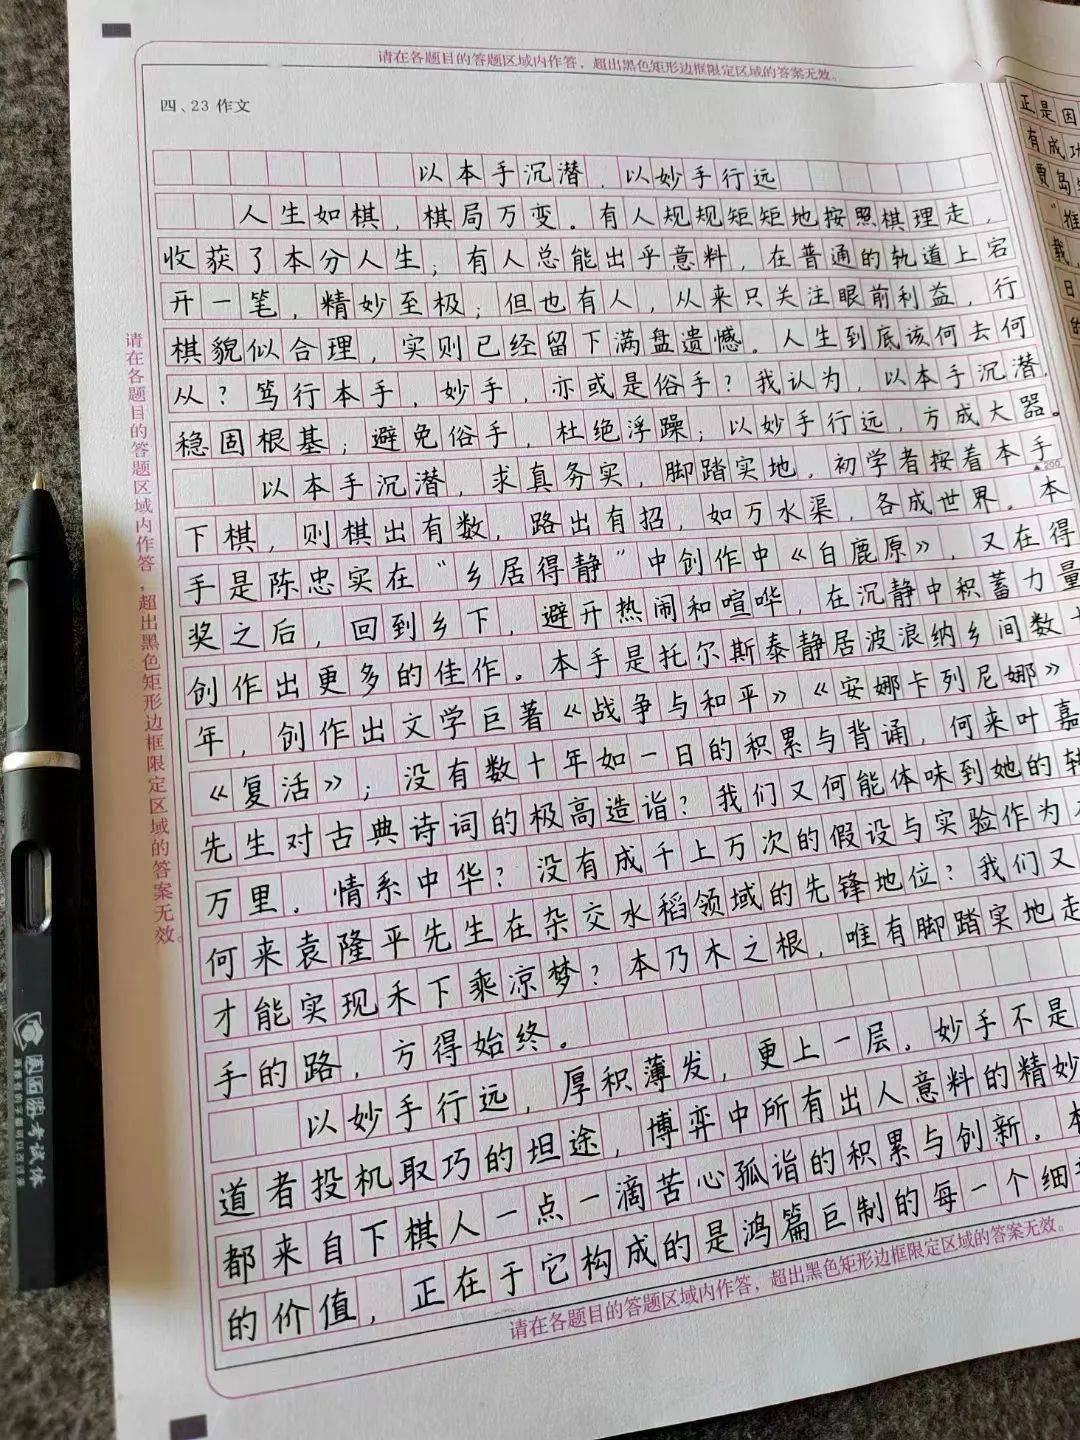 请在各题目的答题区域内作答，超出黑色矩形边框限定区域的答案无效。
四、23 作文
以本手沉潜，以妙手行远
人生如棋，棋局万变。有人规规矩矩地按照棋理走，
收获了本分人生；有人总能出乎意料，在普通的轨道上宕
开一笔，精妙至极；但也有人，从来只关注眼前利益，行
棋貌似合理，实则已经留下满盘遗憾。人生到底该何去何
从？笃行本手，妙手，亦或是俗手？我认为，以本手沉潜，
稳固根基；避免俗手，杜绝浮躁；以妙手行远，方成大器。
以本手沉潜，求真务实，脚踏实地，初学者按着本手
▲200
下棋，则棋出有数，路出有招，如万水渠，各成世界。本
手是陈忠实在“乡居得静”中创作中《白鹿原》，又在得
奖之后，回到乡下，避开热闹和喧哗，在沉静中积蓄力量
创作出更多的佳作。本手是托尔斯泰静居波浪纳乡间数十
年，创作出文学巨著《战争与和平》《安娜卡列尼娜》
《复活》；没有数十年如一日的积累与背诵，何来叶嘉
先生对古典诗词的极高造诣？我们又何能体味到她的转
万里，情系中华？没有成千上万次的假设与实验作为
何来袁隆平先生在杂交水稻领域的先锋地位？我们又
才能实现禾下乘凉梦？本乃木之根，唯有脚踏实地走
手的路，方得始终。
以妙手行远，厚积薄发，更上一层。妙手不是
道者投机取巧的坦途，博弈中所有出人意料的精妙
都来自下棋人一点一滴苦心孤诣的积累与创新。本
的价值，正在于它构成的是鸿篇巨制的每一个细
请在各题目的答题区域内作答，超出黑色矩形边框限定区域的答案无效。
请在各题目的答题区域内作答，超出黑色矩形边框限定区域的答案无效。
正是因
有成功
贾岛
“推
我，
日
的
考试体